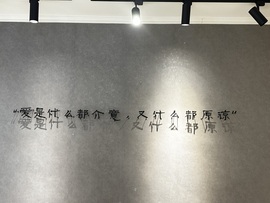 “爱是什么都介意，又什么都原谅”